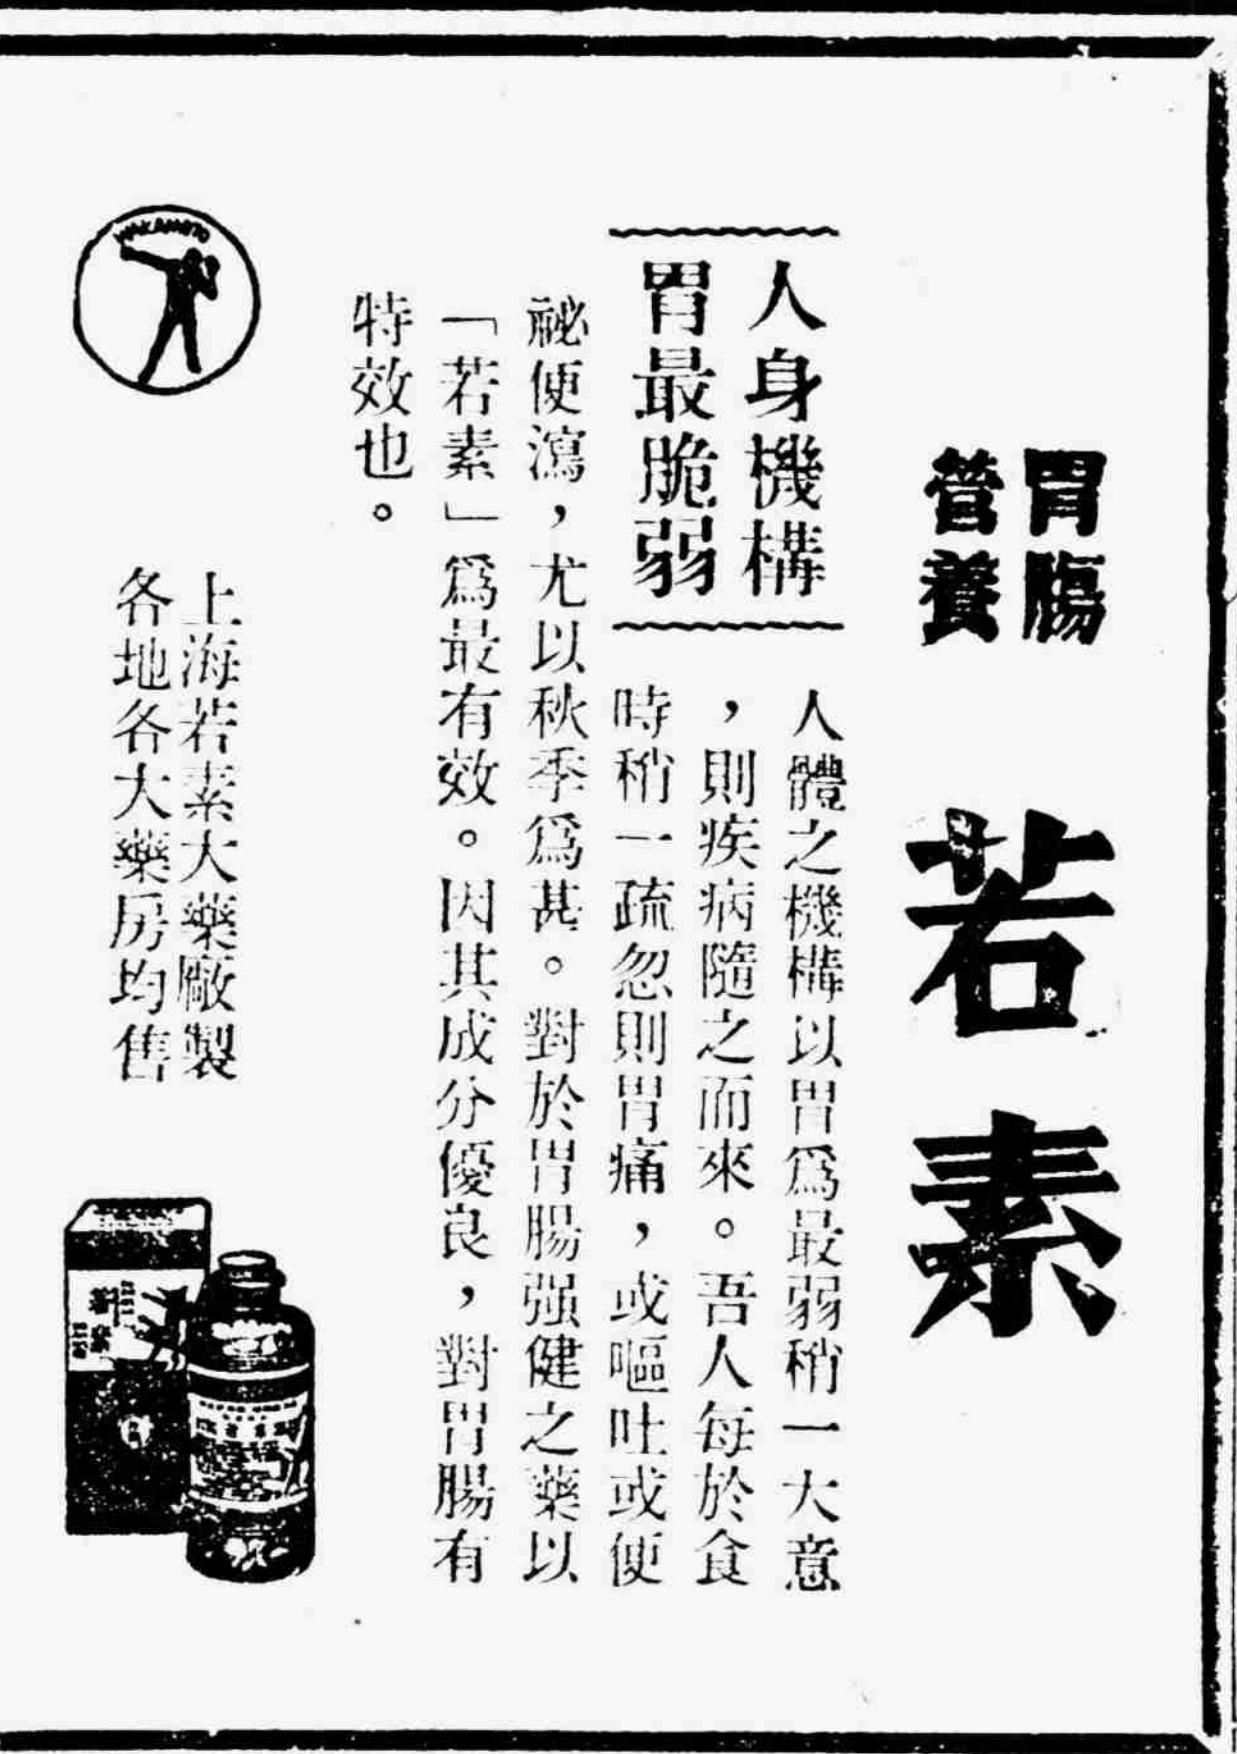 胃腸
營養
若素
人身機構
胃最脆弱
人體之機構以胃爲最弱稍一大意
，則疾病隨之而來。吾人每於食
時稍一疏忽則胃痛，或嘔吐或便
祕便瀉，尤以秋季爲甚。對於胃腸强健之藥以
「若素」爲最有效。因其成分優良，對胃腸有
特效也。
WAKAMOTO
上海若素大藥廠製
各地各大藥房均售
若素